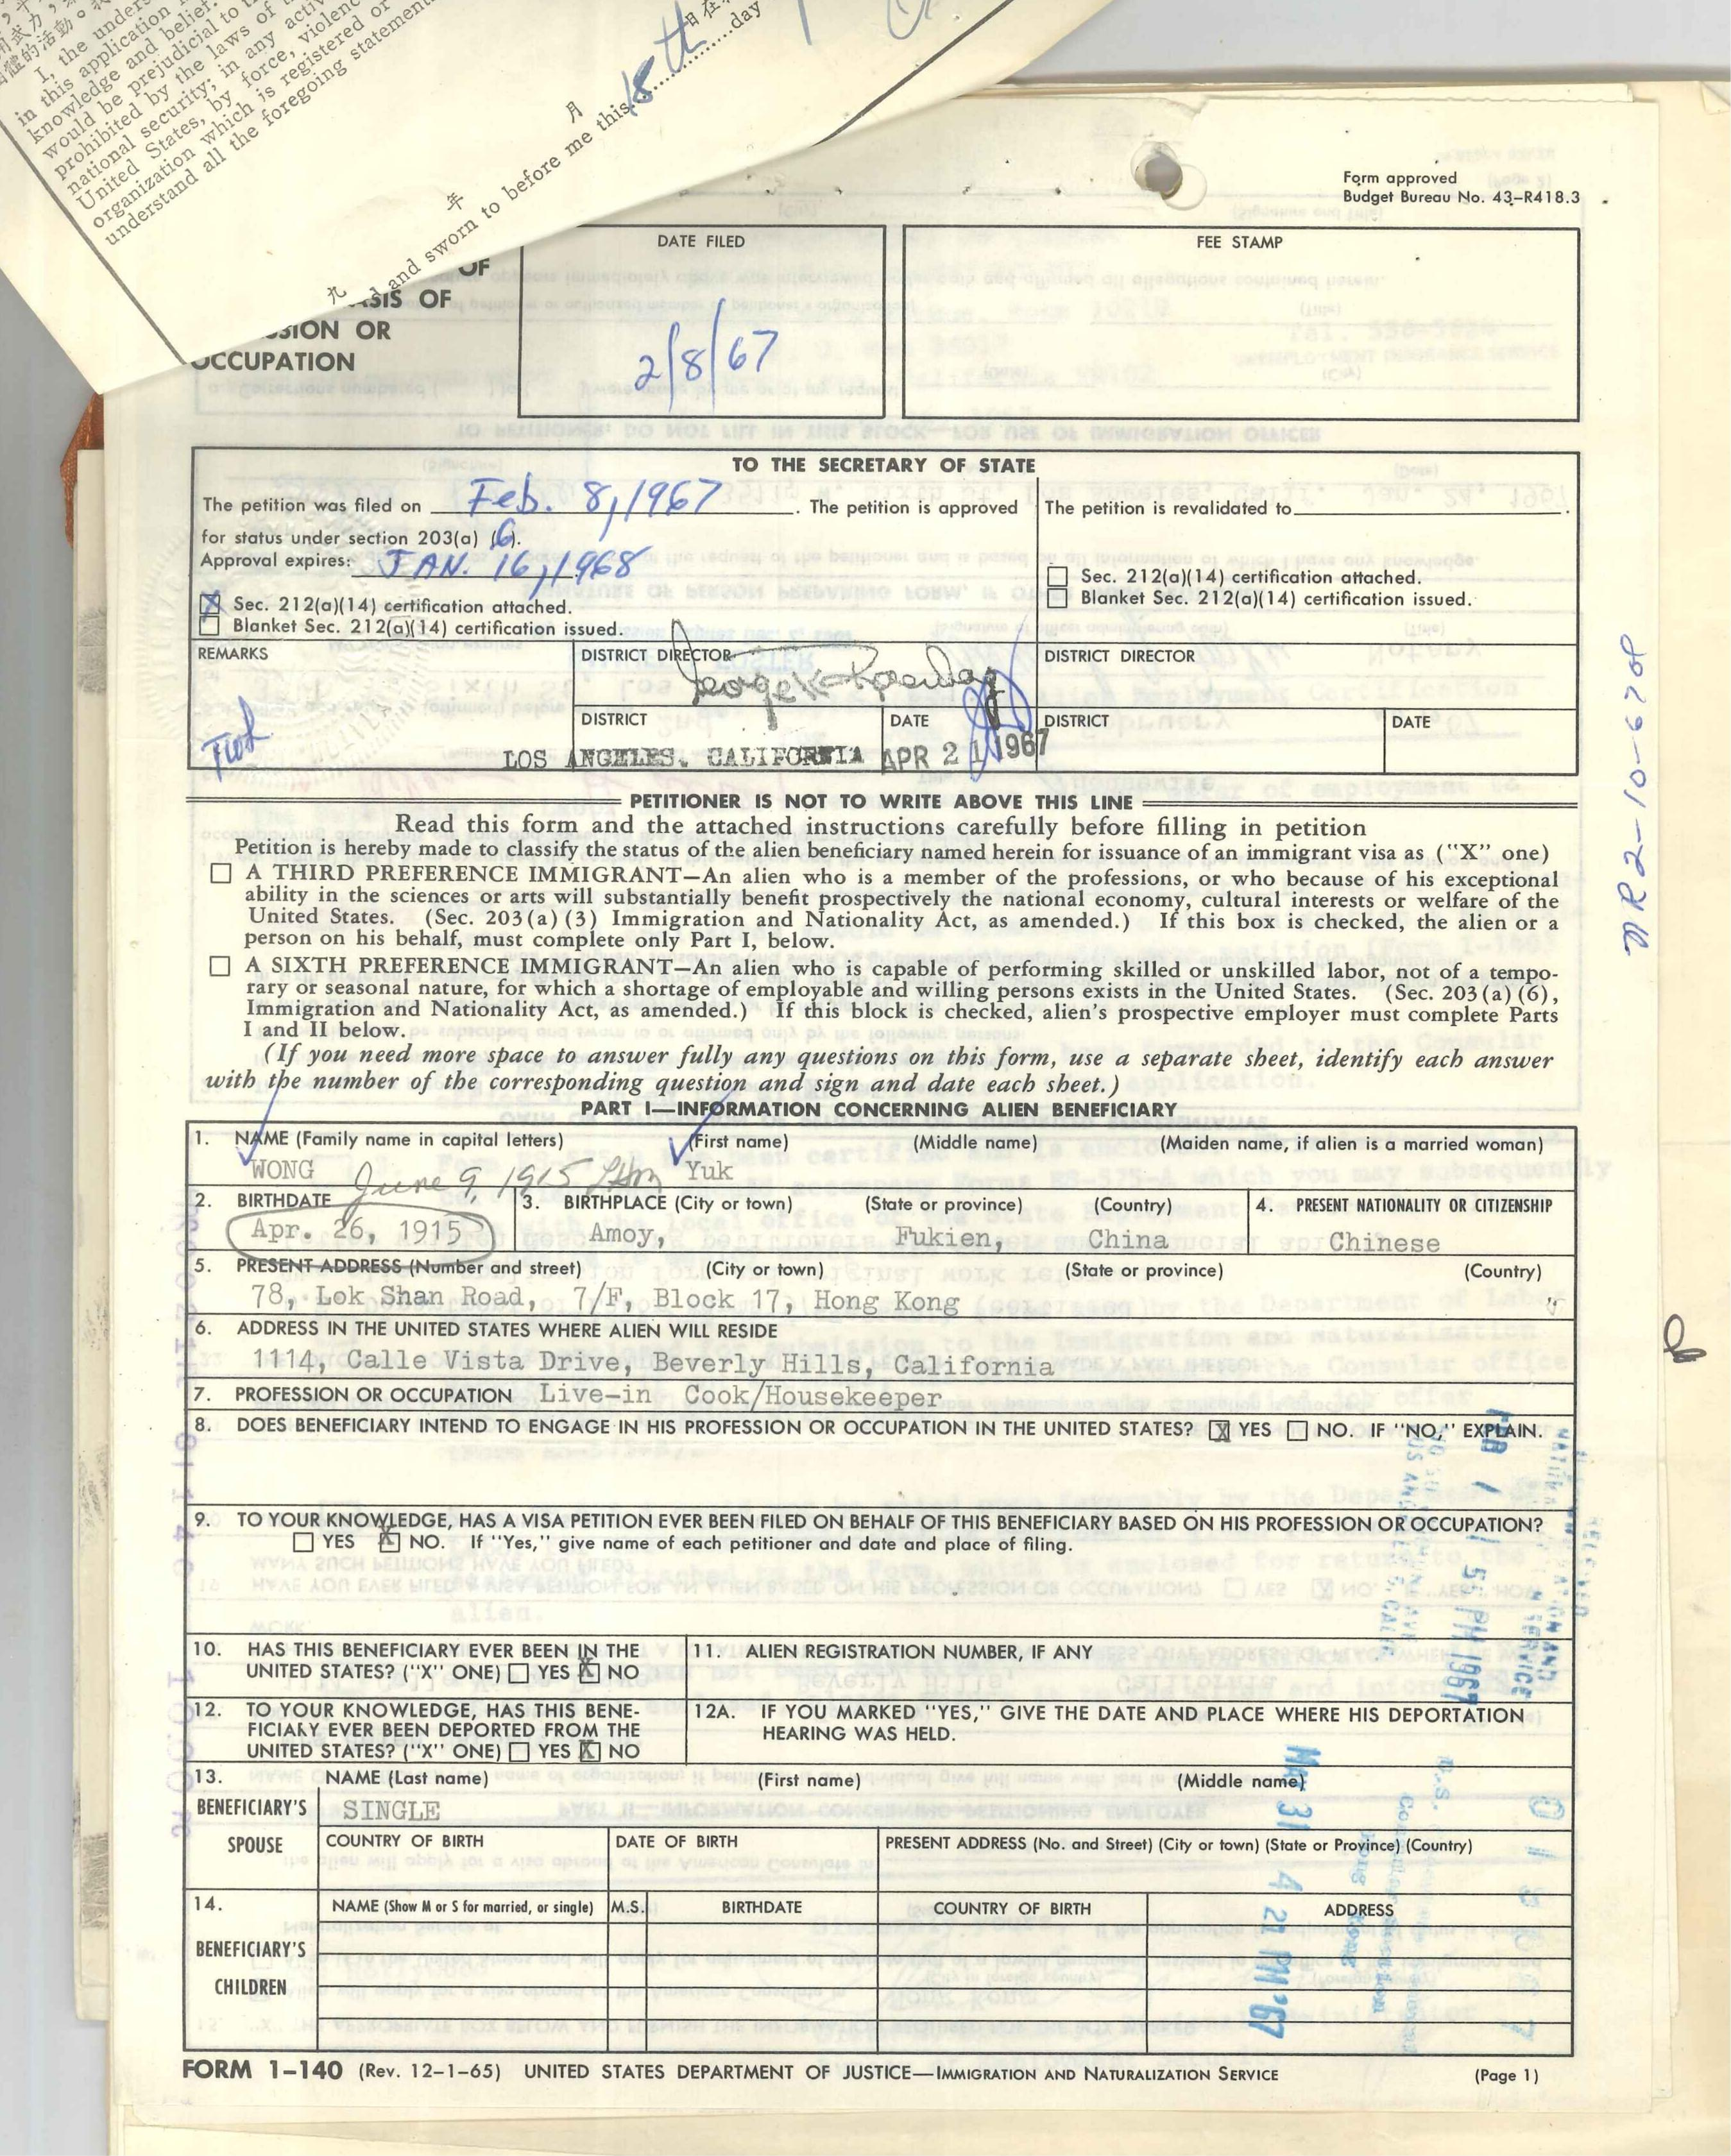 I, the unders
in this application
knowledge and belief
would be prejudicial to
prohibited by the laws of
national security; in any activ
United States, by force, violenc
organization which is registered or
understand all the foregoing statement
年 月
九
and sworn to before me this 18th day
Form approved
Budget Bureau No. 43-R418.3
OF
ASIS OF
SION OR
OCCUPATION
DATE FILED
2/8/67
FEE STAMP
TO THE SECRETARY OF STATE
The petition was filed on Feb. 8, 1967. The petition is approved
for status under section 203(a) (6).
Approval expires: JAN. 16, 1968
X Sec. 212(a)(14) certification attached.
Blanket Sec. 212(a)(14) certification issued.
The petition is revalidated to
Sec. 212(a)(14) certification attached.
Blanket Sec. 212(a)(14) certification issued.
REMARKS
DISTRICT DIRECTOR
DISTRICT DIRECTOR
DISTRICT
LOS ANGELES, CALIFORNIA
DATE
APR 21 1967
DISTRICT
DATE
MR2-10-67
PETITIONER IS NOT TO WRITE ABOVE THIS LINE
Read this form and the attached instructions carefully before filling in petition
Petition is hereby made to classify the status of the alien beneficiary named herein for issuance of an immigrant visa as ("X" one)
A THIRD PREFERENCE IMMIGRANT—An alien who is a member of the professions, or who because of his exceptional
ability in the sciences or arts will substantially benefit prospectively the national economy, cultural interests or welfare of the
United States. (Sec. 203(a)(3) Immigration and Nationality Act, as amended.) If this box is checked, the alien or a
person on his behalf, must complete only Part I, below.
A SIXTH PREFERENCE IMMIGRANT—An alien who is capable of performing skilled or unskilled labor, not of a tempo-
rary or seasonal nature, for which a shortage of employable and willing persons exists in the United States. (Sec. 203(a)(6),
Immigration and Nationality Act, as amended.) If this block is checked, alien's prospective employer must complete Parts
I and II below.
(If you need more space to answer fully any questions on this form, use a separate sheet, identify each answer
with the number of the corresponding question and sign and date each sheet.)
PART I—INFORMATION CONCERNING ALIEN BENEFICIARY
1. NAME (Family name in capital letters) (First name) (Middle name) (Maiden name, if alien is a married woman)
WONG Yuk
June 9, 1915
2. BIRTHDATE
Apr. 26, 1915
3. BIRTHPLACE (City or town) (State or province) (Country)
Amoy, Fukien, China
4. PRESENT NATIONALITY OR CITIZENSHIP
Chinese
5. PRESENT ADDRESS (Number and street) (City or town) (State or province) (Country)
78, Lok Shan Road, 7/F, Block 17, Hong Kong
6. ADDRESS IN THE UNITED STATES WHERE ALIEN WILL RESIDE
1114, Calle Vista Drive, Beverly Hills, California
7. PROFESSION OR OCCUPATION Live-in Cook/Housekeeper
8. DOES BENEFICIARY INTEND TO ENGAGE IN HIS PROFESSION OR OCCUPATION IN THE UNITED STATES? X YES NO. IF "NO," EXPLAIN.
9. TO YOUR KNOWLEDGE, HAS A VISA PETITION EVER BEEN FILED ON BEHALF OF THIS BENEFICIARY BASED ON HIS PROFESSION OR OCCUPATION?
YES X NO. If "Yes," give name of each petitioner and date and place of filing.
10. HAS THIS BENEFICIARY EVER BEEN IN THE
UNITED STATES? ("X" ONE) YES X NO
11. ALIEN REGISTRATION NUMBER, IF ANY
12. TO YOUR KNOWLEDGE, HAS THIS BENE-
FICIARY EVER BEEN DEPORTED FROM THE
UNITED STATES? ("X" ONE) YES X NO
12A. IF YOU MARKED "YES," GIVE THE DATE AND PLACE WHERE HIS DEPORTATION
HEARING WAS HELD.
13. NAME (Last name) (First name) (Middle name)
BENEFICIARY'S
SPOUSE
SINGLE
COUNTRY OF BIRTH
DATE OF BIRTH
PRESENT ADDRESS (No. and Street) (City or town) (State or Province) (Country)
14.
BENEFICIARY'S
CHILDREN
NAME (Show M or S for married, or single)
M.S.
BIRTHDATE
COUNTRY OF BIRTH
ADDRESS
MAR 31 4 21 PM '67
FORM I-140 (Rev. 12-1-65) UNITED STATES DEPARTMENT OF JUSTICE—IMMIGRATION AND NATURALIZATION SERVICE
(Page 1)